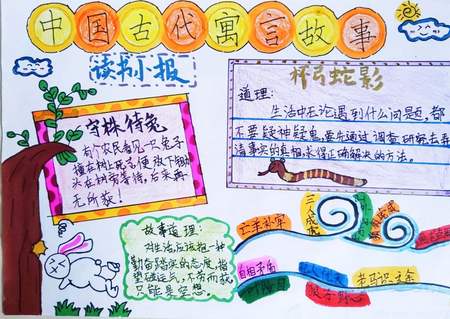 中国古代寓言故事
读书小报
杯弓蛇影
道理：
生活中无论遇到什么问题，都
不要疑神疑鬼，要
通过调查研究去弄
清事实的真相，求得正确解决的方法。
守株待兔
有个农民看见一只兔子
撞在树上死了，便放下锄
头在树旁等待，后来再
无所获！
故事道理：
对生活应该抱一种
勤奋踏实的态度，指
望碰运气，不劳而获
只能是空想。
亡羊补牢
三人成虎
自相矛盾
杞人忧天
老马识途